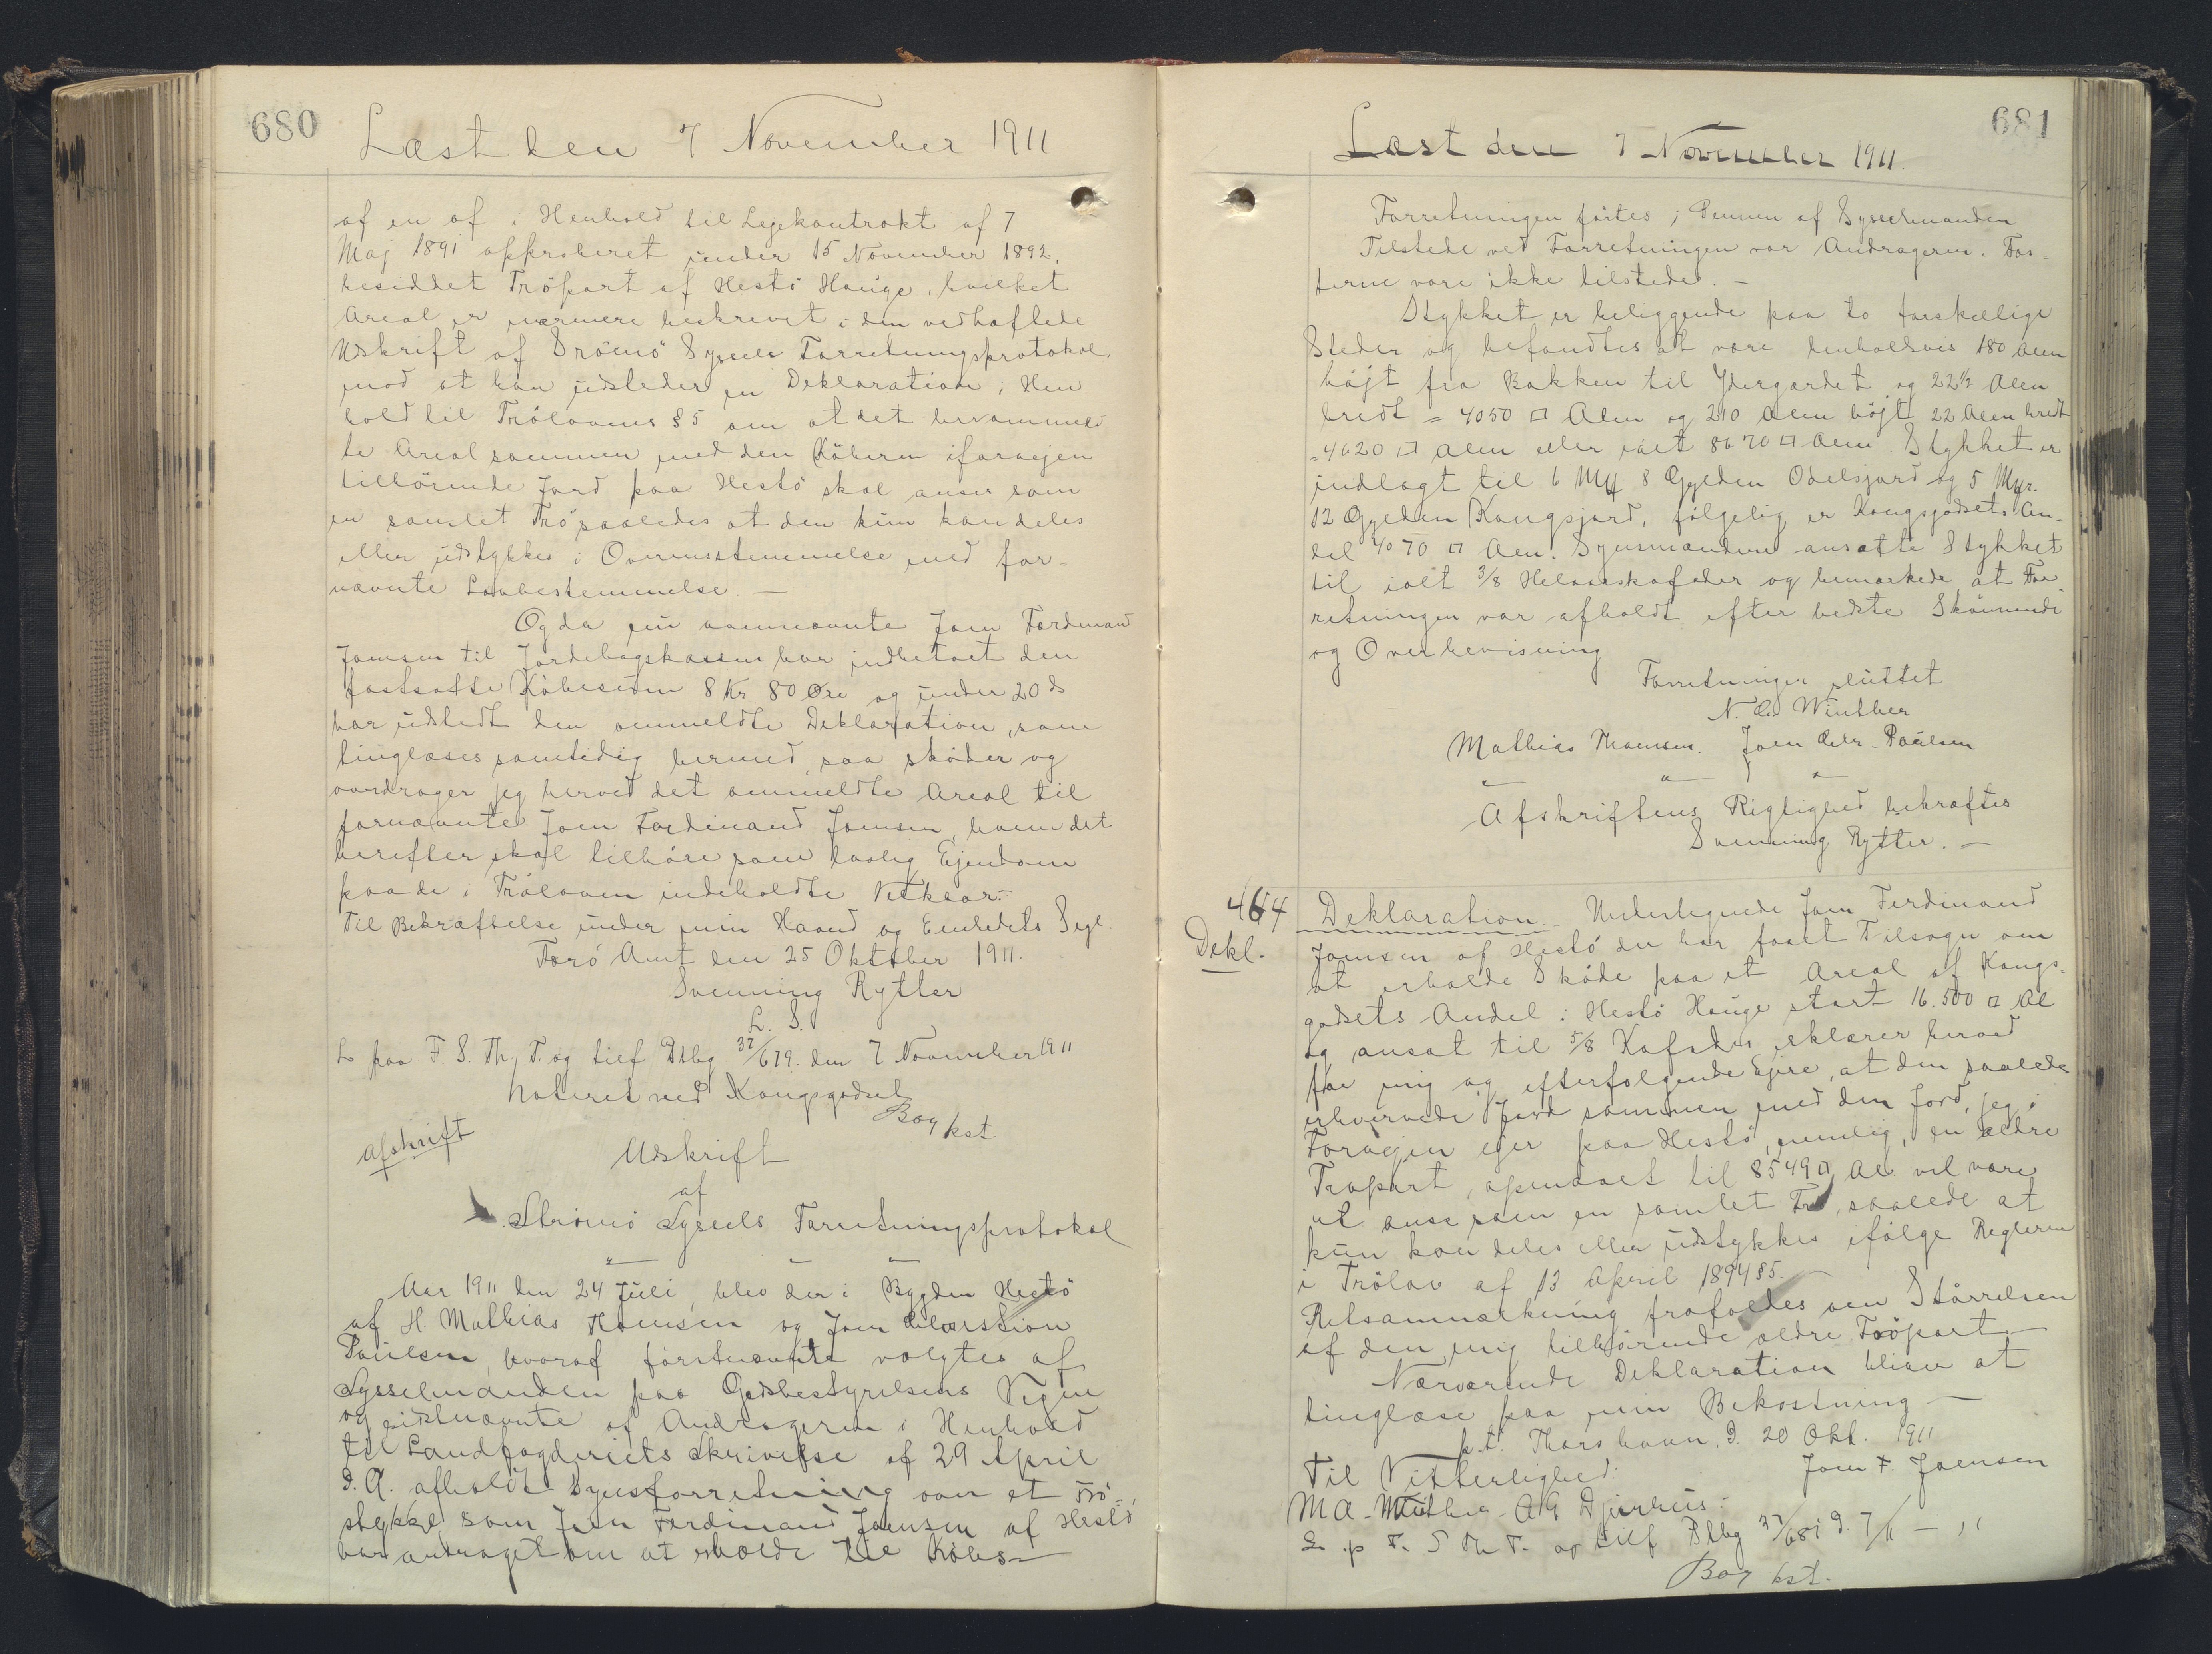 680
Læst den 7 November 1911
af en af i Henhold til Lejekontrakt af 7
Maj 1891 approberet under 15 November 1892,
besiddet Tröpart af Hestö Hauge, hvilket
Areal er nærmere beskrevet i den vedhæftede
Udskrift af Strömö Syssels Forretningsprotokol
mod at han udsteder en Deklaration i Hen
hold til Trölovens § 5 om at det herommeld
te Areal sammen med den Köberen iforvejen
tilhörende Jord paa Hestö skal anses som
en samlet Trö saaledes at den kun kan deles
eller udstykkes i Overensstemmelse med for-
nævnte Lovbestemmelse. —
Og da nu ovennævnte Joen Ferdinand
Joensen til Jordebogskassen har indbetalt den
fastsatte Köbesum 8 Kr 80 Øre og under 20 ds
har udstedt den ommeldte Deklaration, som
tinglæses samtidig hermed, saa sköder og
overdrager jeg herved det ommeldte Areal til
fornævnte Joen Ferdinand Joensen, hvem det
herefter skal tilhöre som lovlig Ejendom
paa de i Tröloven indeholdte Vilkaar.
Til Bekræftelse under min Haand og Embedets Segl.
Færö Amt den 25 Oktober 1911.
Svenning Rytter
L. S.
L paa F. S. Th, T. og tilf Dtbg 37/679. den 7 November 1911
Noteret ved Kongsgodset
Bay kst
Afskrift
Udskrift
af
Strömö Syssels Forretningsprotokol
Aar 1911 den 24 Juli, blev der i Bygden Hestö
af H. Mathias Thomsen og Joen Christian
Paulsen, hvoraf förstnævnte valgtes af
Sysselmanden paa Godsbestyrelsens Vegne
og sidstnævnte af Andrageren i Henhold
til Landfogderiets Skrivelse af 29 April
d. A. afholdt Synsforretning over et Trö-
stykke, som Joen Ferdinand Joensen af Hestö
har andraget om at erholde til Köbs —
681
Læst den 7 November 1911.
Forretningen förtes i Pennen af Sysselmanden
Tilstede ved Forretningen var Andrageren. Fæs-
terne vare ikke tilstede. —
Stykket er beliggende paa to forskellige
Steder og befandtes at være henholdsvis 180 Alen
höjt fra Bakken til Ydergærdet og 22½ Alen
bredt = 4050 □ Alen og 210 Alen höjt 22 Alen bredt
= 4620 □ Alen eller ialt 8670 □ Alen. Stykket er
indlagt til 6 Mk 8 Gylden Odelsjord og 5 Mkr.
12 Gylden Kongsjord, fölgelig er Kongsgodsets An-
del 4070 □ Alen. Synsmændene ansatte Stykket
til ialt 3/8 Helaarskofoder og bemærkede at For
retningen var afholdt efter bedste Skönnende
og Overbevisning
Forretningen sluttet
N. Winther
Mathias Thomsen. Joen Chr. Paulsen
Afskriftens Rigtighed bekræftes
Svenning Rytter. —
464
Dekl.
Deklaration. Undertegnede Joen Ferdinand
Joensen af Hestö der har faaet Tilsagn om
at erholde Sköde paa et Areal af Kongs-
godsets Andel i Hestö Hauge stort 16.500 □ Al
og ansat til 5/8 Kofoder, erklærer herved
for mig og efterfolgende Ejere, at den saaledes
erhvervede Jord sammen med den Jord, jeg i
Forvejen ejer paa Hestö, nemlig, en ældre
Tröpart, opmaalt til 8549 □ Al. vil være
at anse som en samlet Trö, saalede at
kun kan deles eller udstykkes ifölge Reglerne
i Trölov af 13 April 1894 § 5.
Retsanmærkning frafaldes om Störrelsen
af den mig tilhörende ældre Tröpart.
Nærværende Deklaration bliver at
tinglæse paa min Bekostning —
p.t. Thorshavn. d. 20 Okt. 1911
Til Vitterlighed:
Joen F. Joensen
M A. Winther - A G Djurhuus -
L p F. S Th T. og tilf Dtbg 37/681 d. 7/11 — 11
Bay kst.